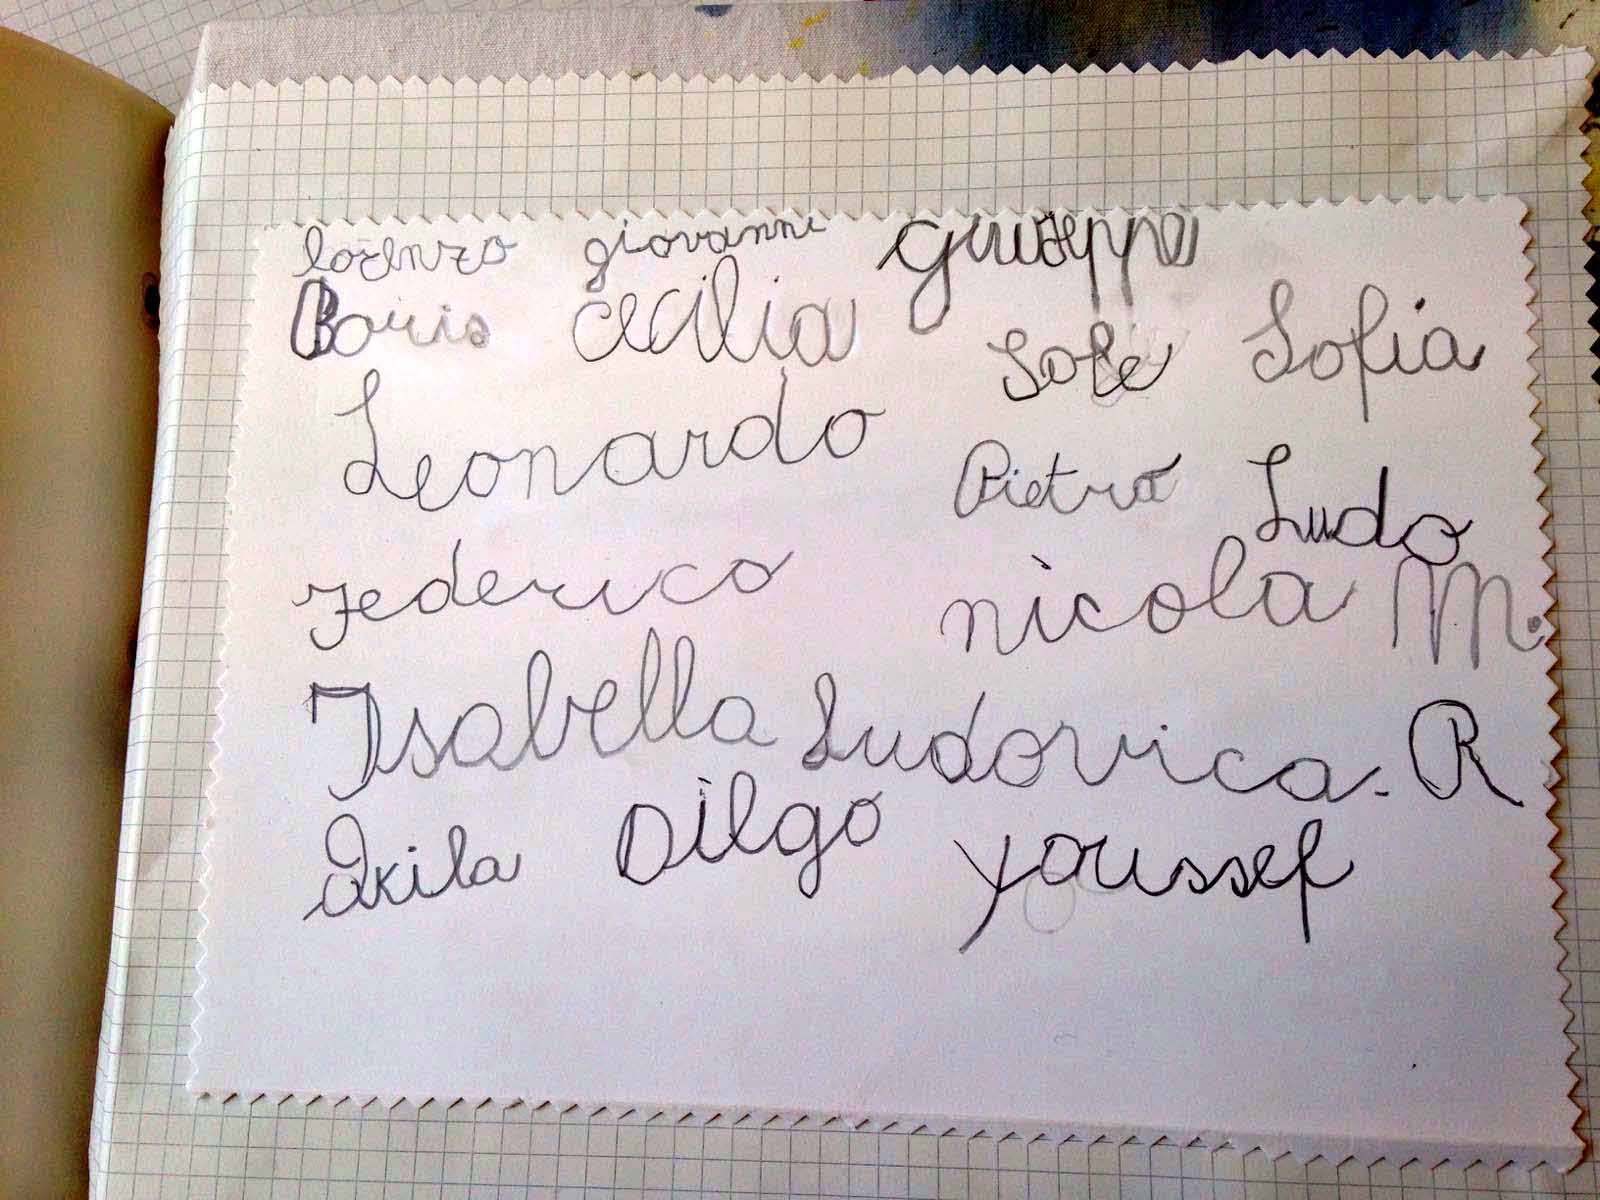 lorenzo giovanni Giuseppe
Boris Cecilia Sofè Sofia
Leonardo Pietro Ludo
Federico nicola M.
Isabella Ludovica. R
Akila Dilgo Youssef